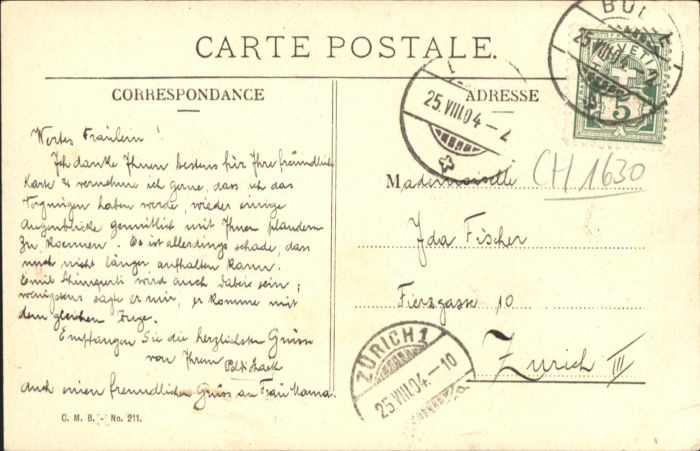 CARTE POSTALE.
CORRESPONDANCE
ADRESSE
Wertes Fräulein!
Ich danke Ihnen bestens für Ihre freundliche
Karte & vernehme ich gerne, dass ich das
Vergnügen haben werde, wieder einige
Augenblicke gemütlich mit Ihnen plaudern
zu koennen. Es ist allerdings schade, dass
mich nicht länger aufhalten kann.
Emil wird auch dabei sein;
wenigstens sagte er mir, er komme mit
dem gleichen Zuge.
Empfangen Sie die herzlichsten Grüsse
von Ihrem
auch einen freundlichen Gruss an Frau Mama.
C. M. B. - No. 211.
BULLE
25.VIII.04
HELVETIA
5
25.VIII.04-2
Mademoiselle
CH 1630
Ida Fischer
Fierzgasse 10
Zürich III
ZÜRICH 1
25.VIII.04.-10